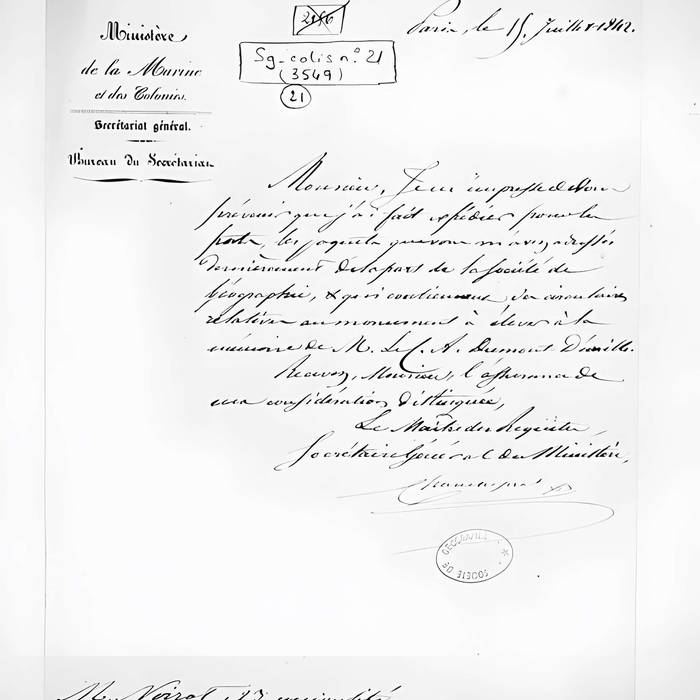 2186
Paris, le 15 Juillet 1842.
Sg. colis n.º 21
(3549)
21
Ministère
de la Marine
et des Colonies.
Secrétariat général.
Bureau du Secrétariat
Monsieur, Je m'empresse de vous
prévenir que j'ai fait expédier pour la
poste, les paquets que vous m'avez adressés
dernièrement de la part de la Société de
Géographie, & qui contiennent des circulaires
relatives au monument à élever à la
mémoire de M. Le C. A. Dumont D'urville.
Recevez, Monsieur, l'assurance de
ma considération distinguée,
Le Maître des Requêtes,
Secrétaire Général du Ministère,
SOCIÉTÉ DE GÉOGRAPHIE
M. Noirot